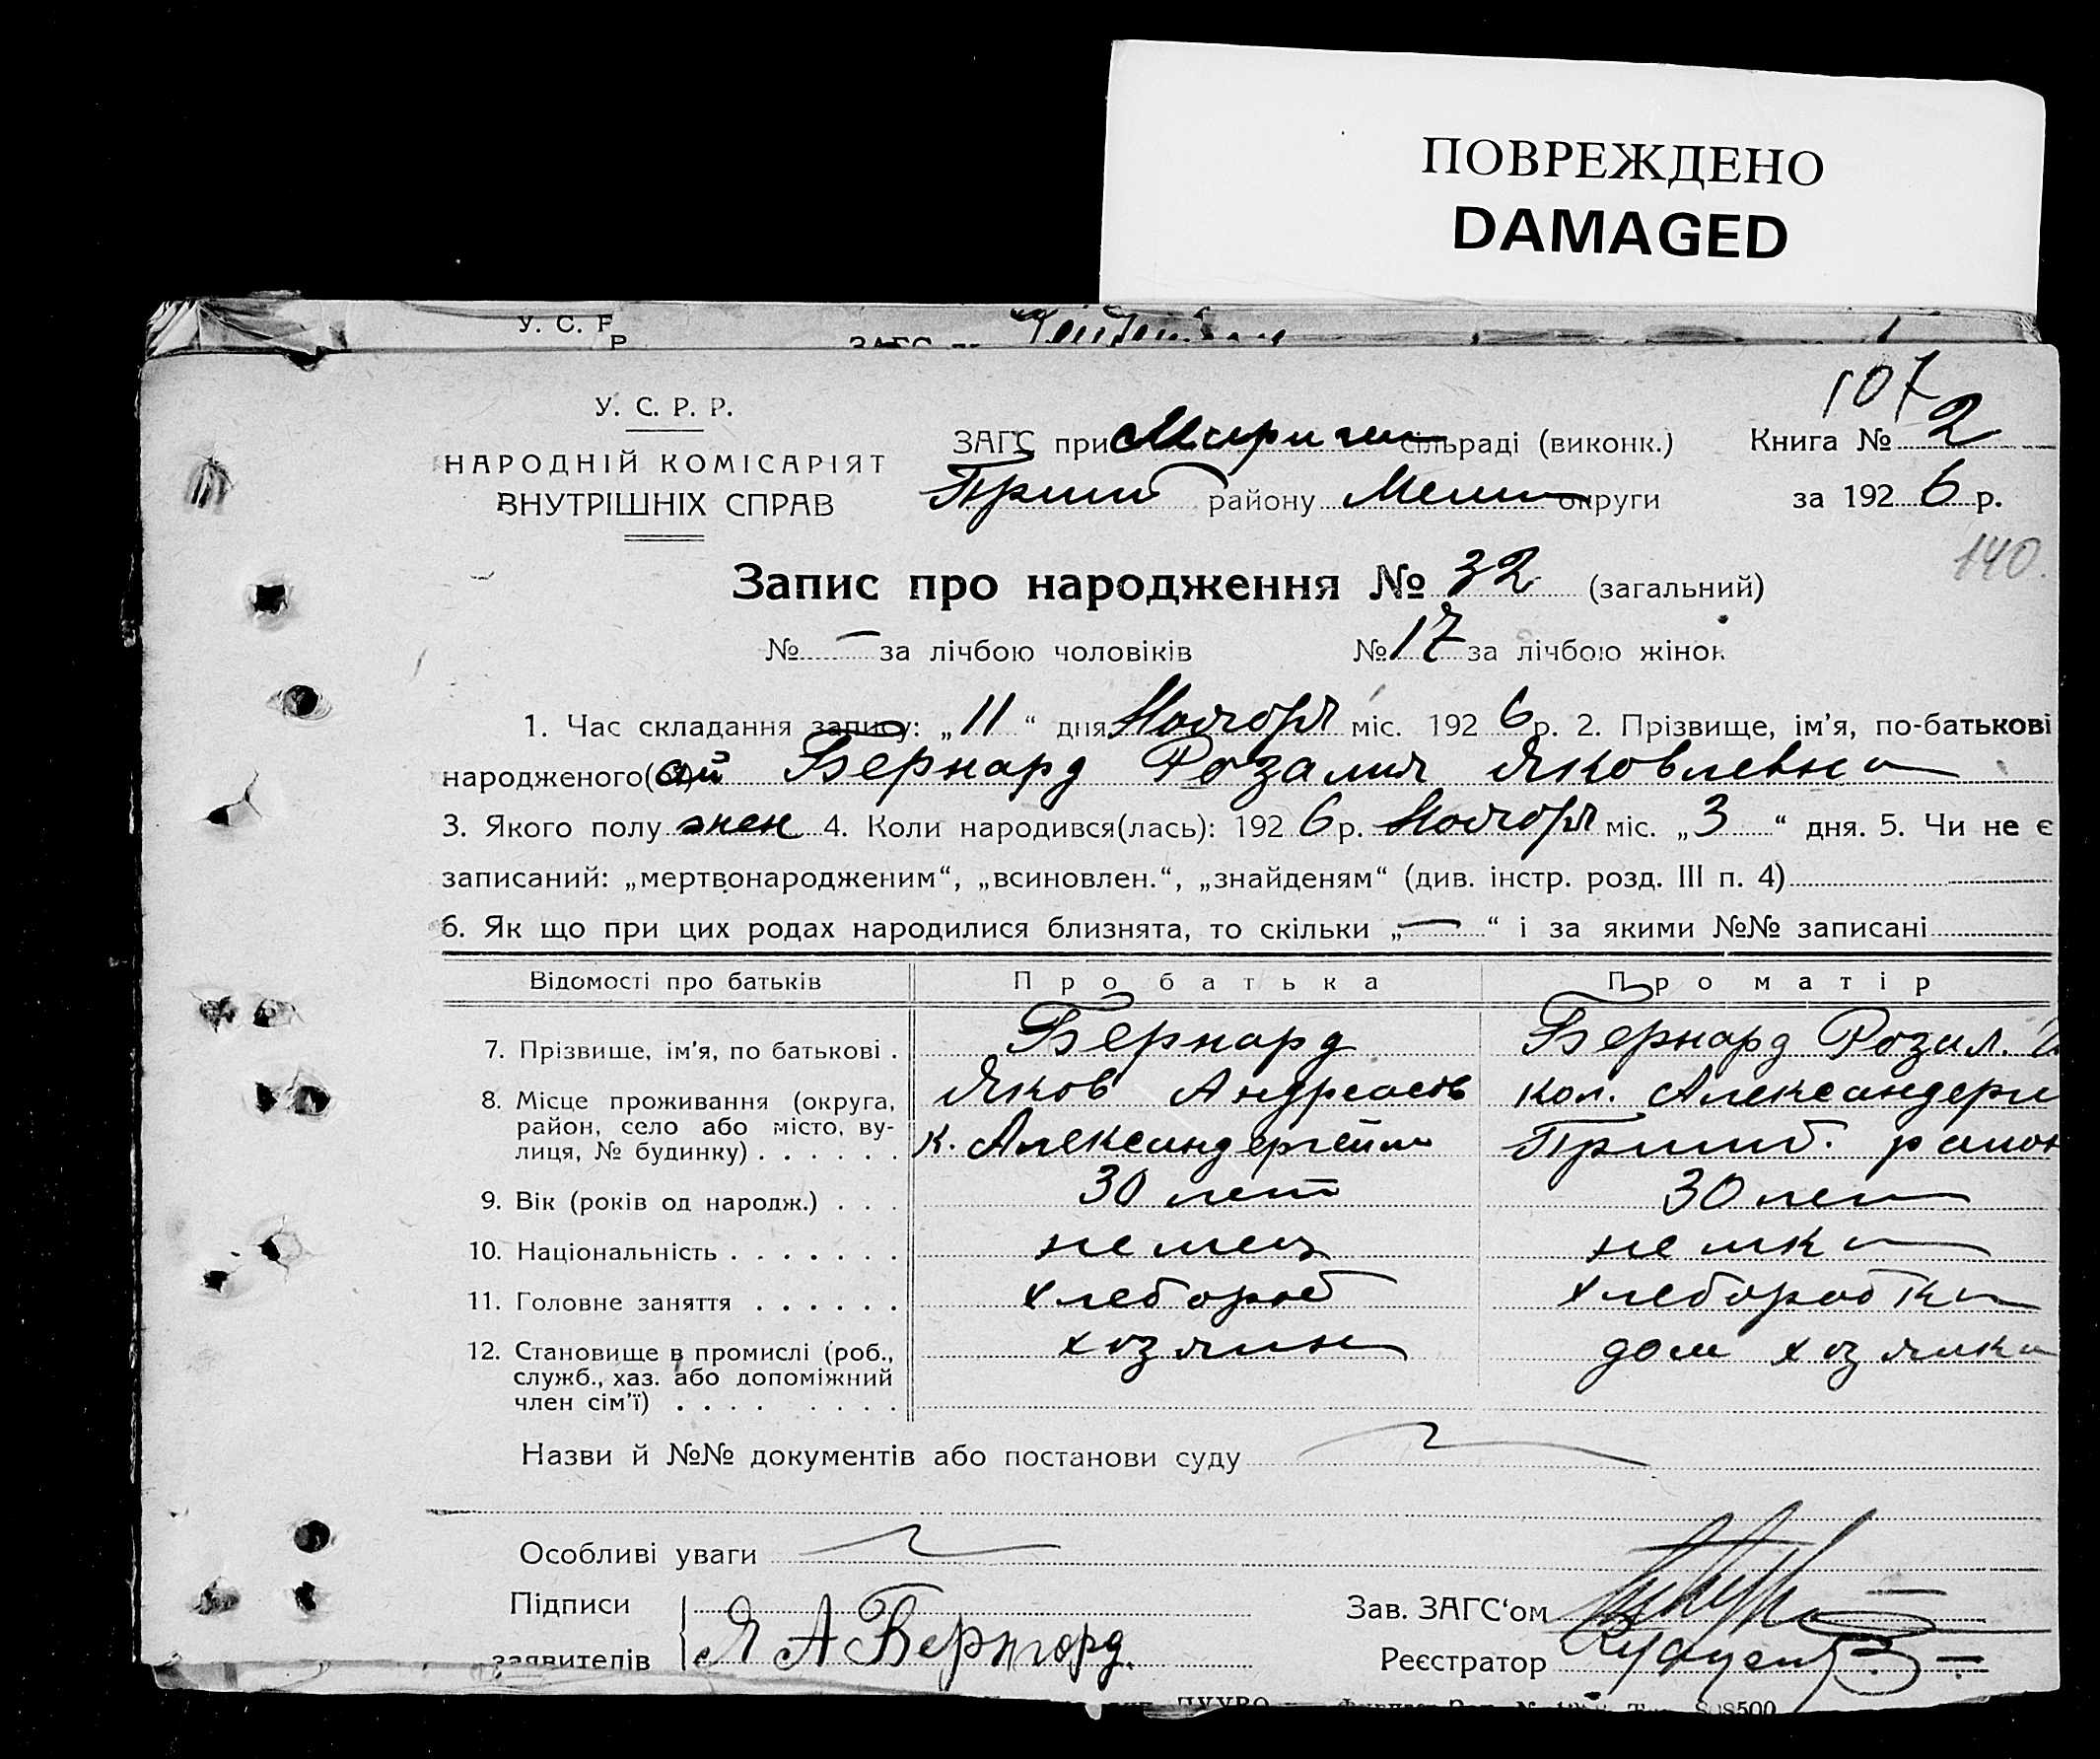 ПОВРЕЖДЕНО
DAMAGED
У. С. Р
ЗАГС
107
У. С. Р. Р.
НАРОДНІЙ КОМІСАРІЯТ
ВНУТРІШНІХ СПРАВ
ЗАГС при сільраді (виконк.) Книга № 2
Приш району Мели округи за 1926 р.
140.
Запис про народження № 32 (загальний)
№ — за лічбою чоловіків № 17 за лічбою жінок
1. Час складання запису: „11“ дня Ноября міс. 1926 р. 2. Прізвище, ім’я, по-батькові
народженого(ой) Бернард Розалия Яковлевна
3. Якого полу жен 4. Коли народився(лась): 1926 р. Ноября міс. „3“ дня. 5. Чи не є
записаний: „мертвонародженим“, „всиновлен.“, „знайденям“ (див. інстр. розд. III п. 4)
6. Як що при цих родах народилися близнята, то скільки „—“ і за якими №№ записані
Відомості про батьків Про батька Про матір
7. Прізвище, ім’я, по батькові . Бернард Бернард Розал.
8. Місце проживання (округа, район, село або місто, вулиця, № будинку) . . . . . . Яков Андреасов к. Александергейм кол. Александерг Приш. район
9. Вік (років од народж.) . . . 30 лет 30 лет
10. Національність . . . . . . . немец немка
11. Головне заняття . . . . . . хлебороб хлеборобка
12. Становище в промислі (роб., служб., хаз. або допоміжний член сім’ї) . . . . . . . . хозяин дом хозяйка
Назви й №№ документів або постанови суду
Особливі уваги
Підписи
заявителів Я А Бернгорд.
Зав. ЗАГС‘ом
Реєстратор